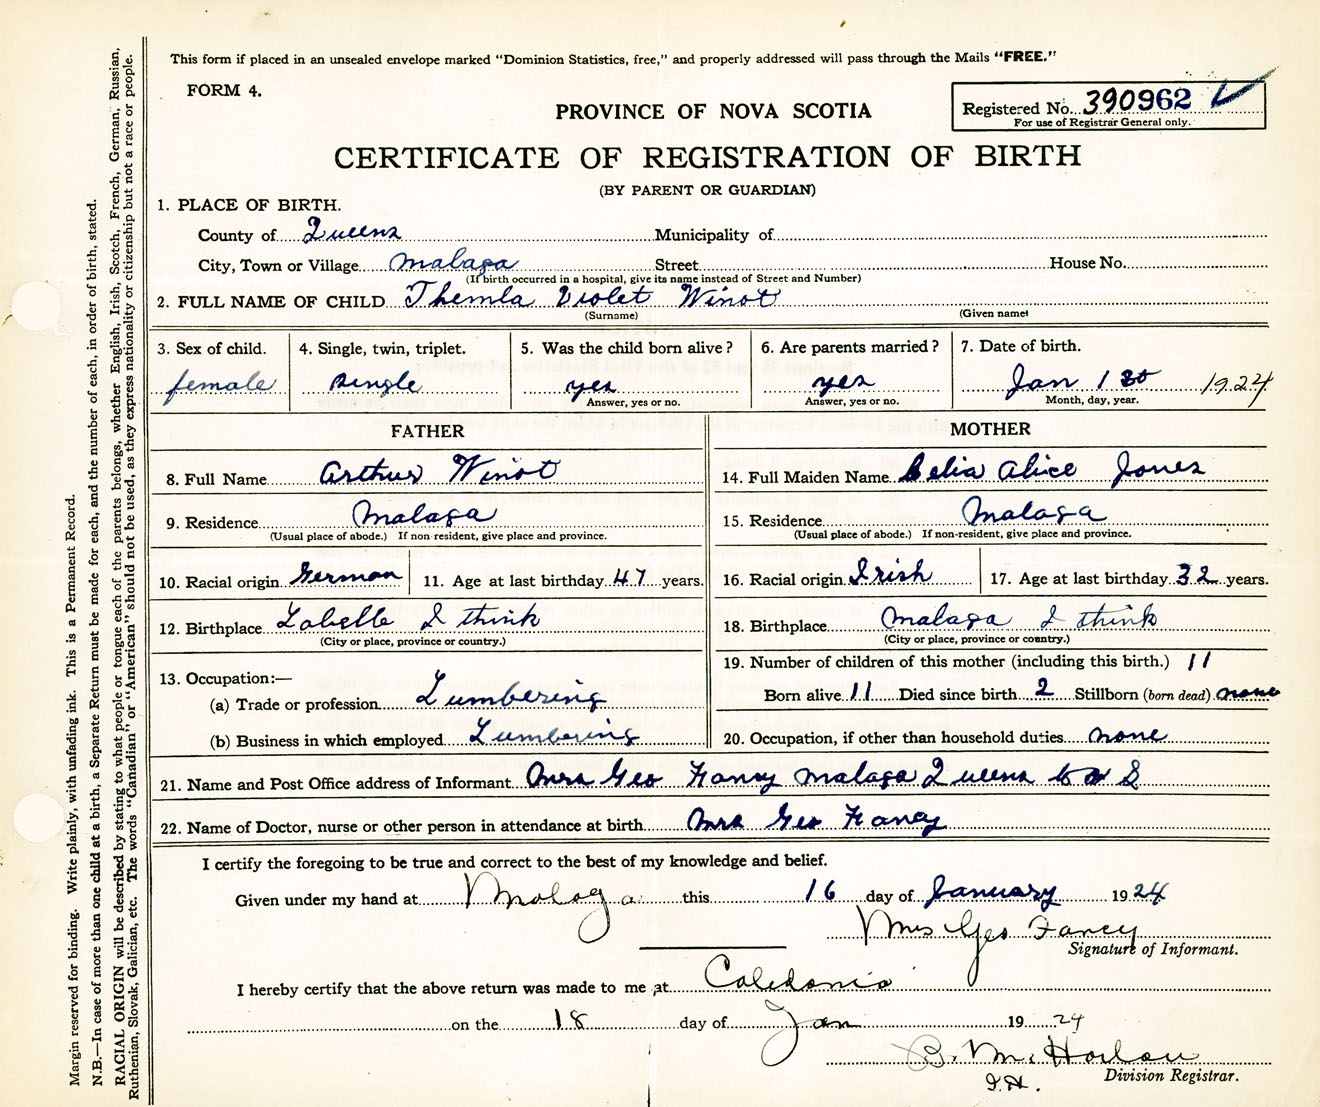 This form if placed in an unsealed envelope marked "Dominion Statistics, free," and properly addressed will pass through the Mails "FREE."
FORM 4.
Registered No. 390962
For use of Registrar General only.
PROVINCE OF NOVA SCOTIA
CERTIFICATE OF REGISTRATION OF BIRTH
(BY PARENT OR GUARDIAN)
1. PLACE OF BIRTH.
County of Queens Municipality of
City, Town or Village Malaga Street House No.
(If birth occurred in a hospital, give its name instead of Street and Number)
2. FULL NAME OF CHILD Themla Violet Winot
(Surname) (Given name)
3. Sex of child. 4. Single, twin, triplet. 5. Was the child born alive? 6. Are parents married? 7. Date of birth.
female single yes yes Jan 1 1924
Answer, yes or no. Answer, yes or no. Month, day, year.
FATHER MOTHER
8. Full Name Arthur Winot 14. Full Maiden Name Celia Alice Jones
9. Residence Malaga 15. Residence Malaga
(Usual place of abode.) If non-resident, give place and province. (Usual place of abode.) If non-resident, give place and province.
10. Racial origin German 11. Age at last birthday 47 years. 16. Racial origin Irish 17. Age at last birthday 32 years.
12. Birthplace Labelle I think 18. Birthplace Malaga I think
(City or place, province or country.) (City or place, province or country.)
13. Occupation:— 19. Number of children of this mother (including this birth.) 11
(a) Trade or profession Lumbering Born alive 11 Died since birth 2 Stillborn (born dead) none
(b) Business in which employed Lumbering 20. Occupation, if other than household duties none
21. Name and Post Office address of Informant Mrs Geo Fancy Malaga Queens Co N S
22. Name of Doctor, nurse or other person in attendance at birth Mrs Geo Fancy
I certify the foregoing to be true and correct to the best of my knowledge and belief.
Given under my hand at Molega this 16 day of January 1924
Mrs Geo Fancy
Signature of Informant.
I hereby certify that the above return was made to me at Caledonia
on the 18 day of Jan 19 24
Division Registrar.
Margin reserved for binding. Write plainly, with unfading ink. This is a Permanent Record.
N.B.—In case of more than one child at a birth, a Separate Return must be made for each, and the number of each, in order of birth, stated.
RACIAL ORIGIN will be described by stating to what people or tongue each of the parents belongs, whether English, Irish, Scotch, French, German, Russian,
Ruthenian, Slovak, Galician, etc. The words "Canadian" or "American" should not be used, as they express nationality or citizenship but not a race or people.